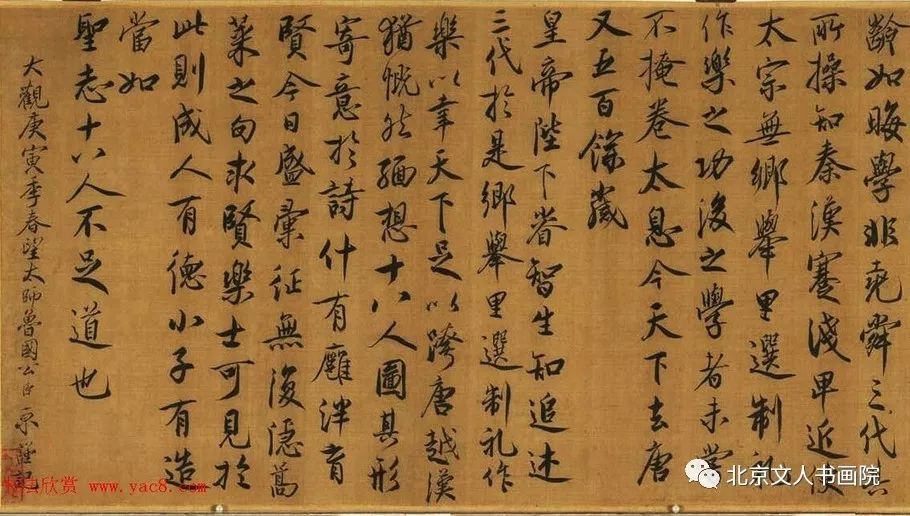 齡如晦學非堯舜三代之
所操知秦漢蹇淺卑近使
太宗無鄉舉里選制礼
作樂之功後之學者未嘗
不掩卷太息今天下去唐
又五百餘歲
皇帝陛下睿智生知追述
三代於是鄉舉里選制礼作
樂以幸天下足以跨唐越漢
猶慨然緬想十八人圖其形
寄意於詩什有廱泮育
賢今日盛彙征無復隱蒿
萊之句求賢樂士可見於
此則成人有德小子有造
當如
聖志十八人不足道也
大觀庚寅季春望太師魯國公臣京謹
书法欣赏 www.yac8.com
北京文人书画院